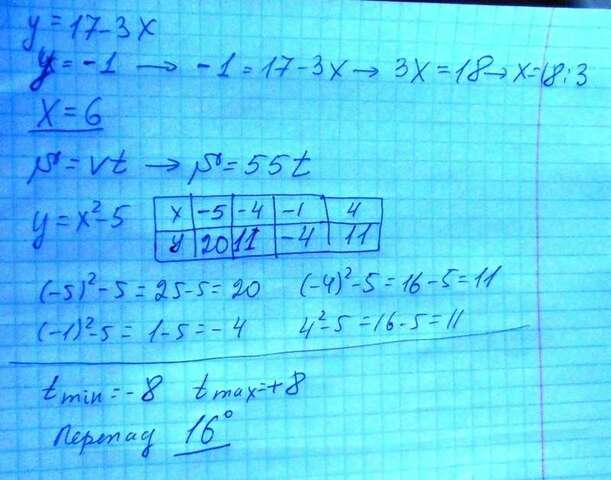 y = 17 - 3x
y = -1 → -1 = 17 - 3x → 3x = 18 → x = 18 : 3
x = 6
S = vt → S = 55t
y = x² - 5
x -5 -4 -1 4
y 20 11 -4 11
(-5)² - 5 = 25 - 5 = 20 (-4)² - 5 = 16 - 5 = 11
(-1)² - 5 = 1 - 5 = -4 4² - 5 = 16 - 5 = 11
t min = -8 t max = +8
Перепад 16°